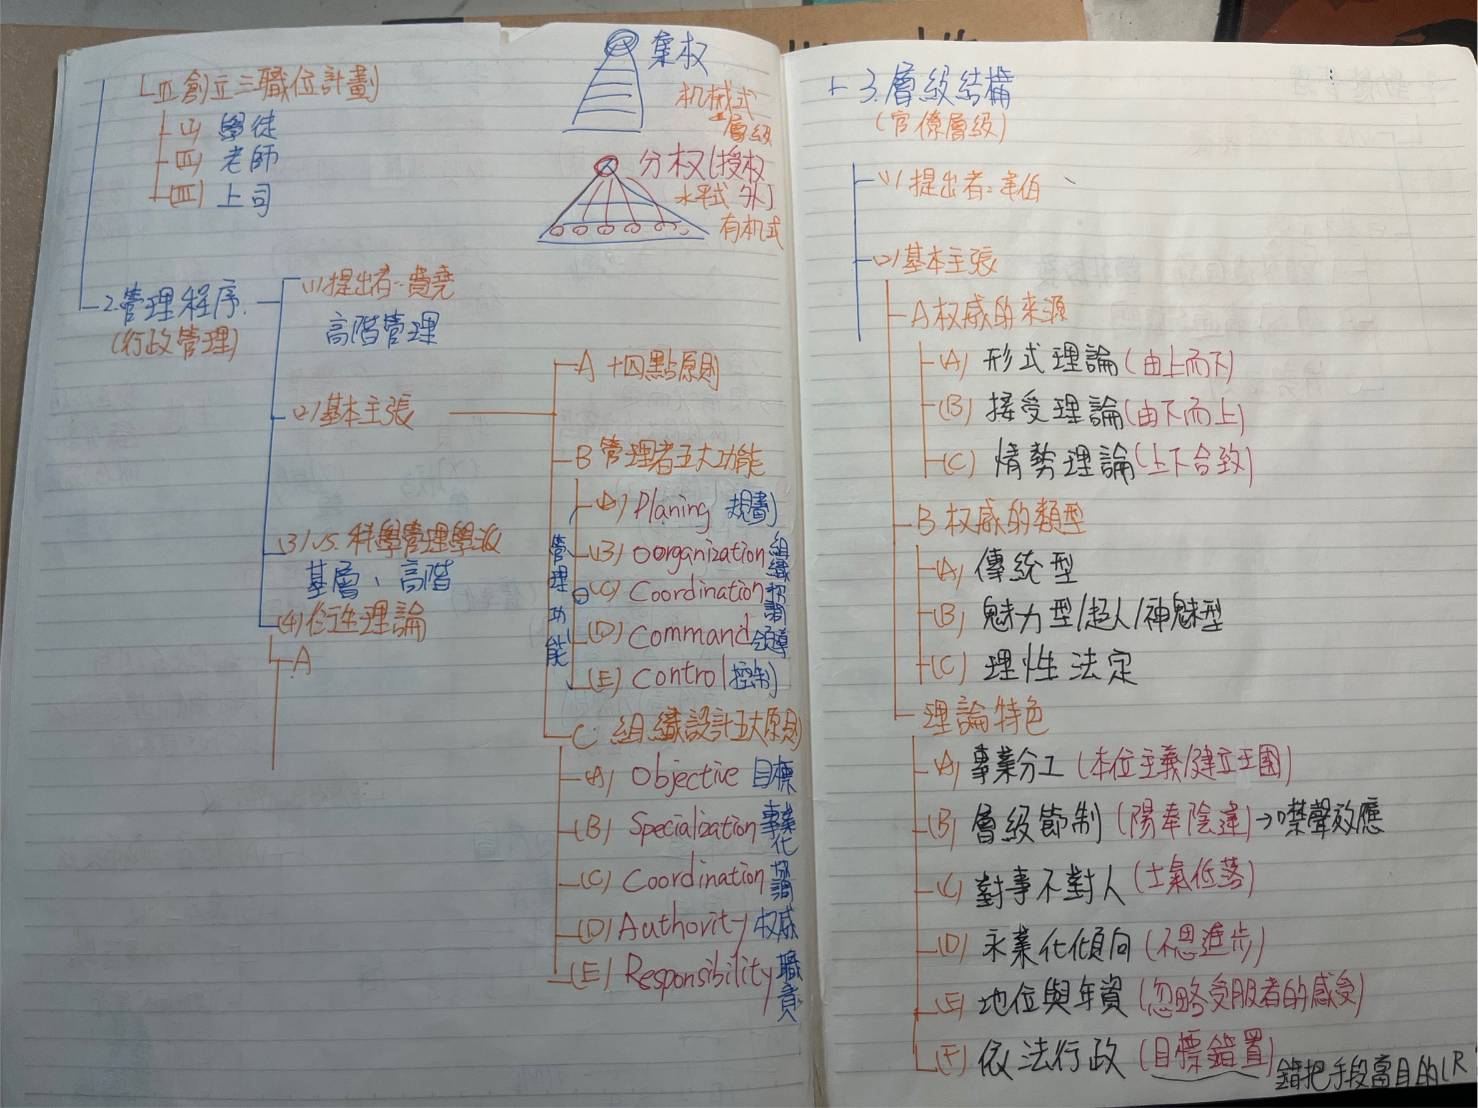 Ⅱ.創立三職位計劃
(Ⅰ) 學徒
(Ⅱ) 老師
(Ⅲ) 上司
集权
机械式
層級
分权(授权
水平式 分)
有机式
2.管理程序
(行政管理)
(1)提出者:費堯
高階管理
(2)基本主張
A 十四點原則
B 管理者五大功能
管理功能
(A) Planing 規劃
(B) Oorganization 組織
(C) Coordination 協調
(D) Command 領導
(E) Control 控制
C 組織設計五大原則
(A) Objective 目標
(B) Specialization 專業化
(C) Coordination 協調
(D) Authority 权威
(E) Responsibility 職責
(3)VS.科學管理學派
基層、高階
(4)衍生理論
A
3.層級結構
(官僚層級)
(1)提出者:韋伯
(2)基本主張
A 权威的來源
(A) 形式理論(由上而下)
(B) 接受理論(由下而上)
(C) 情勢理論(上下合致)
B 权威的類型
(A) 傳統型
(B) 魅力型/超人/神魅型
(C) 理性法定
理論特色
(A) 專業分工(本位主義/建立王國)
(B) 層級節制(陽奉陰違)→噤聲效應
(C) 對事不對人(士氣低落)
(D) 永業化傾向(不思進步)
(E) 地位與年資(忽略受服者的感受)
(F) 依法行政(目標錯置)
錯把手段當目的(R